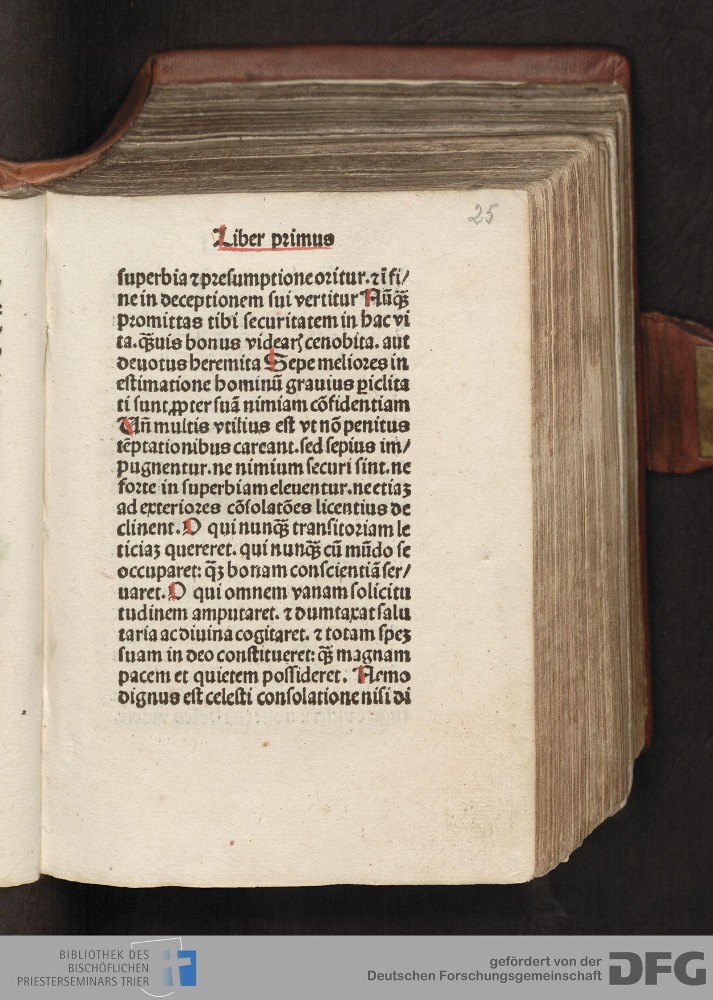 25
Liber primus
superbia ⁊ presumptione oritur. ⁊ ī fi/
ne in deceptionem sui vertitur Nūq̄ꝫ
promittas tibi securitatem in hac vi
ta. q̄ꝫuis bonus videarꝭ cenobita. aut
deuotus heremita Sepe meliores in
estimatione hominū grauius ꝑiclita
ti sunt ꝓpter suā nimiam cōfidentiam
Uñ multis vtilius est vt nō penitus
tēptationibus careant. sed sepius im/
pugnentur. ne nimium securi sint. ne
forte in superbiam eleuentur. ne etiaꝫ
ad exteriores cōsolatōes licentius de
clinent. O qui nunq̄ꝫ transitoriam le
ticiaꝫ quereret. qui nunq̄ꝫ cū mūdo se
occuparet: q̄ꝫ bonam conscientiā ser/
uaret. O qui omnem vanam solicitu
tudinem amputaret. ⁊ dumtaxat salu
taria ac diuina cogitaret. ⁊ totam speꝫ
suam in deo constitueret: q̄ꝫ magnam
pacem et quietem possideret. Nemo
dignus est celesti consolatione nisi di
BIBLIOTHEK DES
BISCHÖFLICHEN
PRIESTERSEMINARS TRIER
gefördert von der
Deutschen Forschungsgemeinschaft
DFG